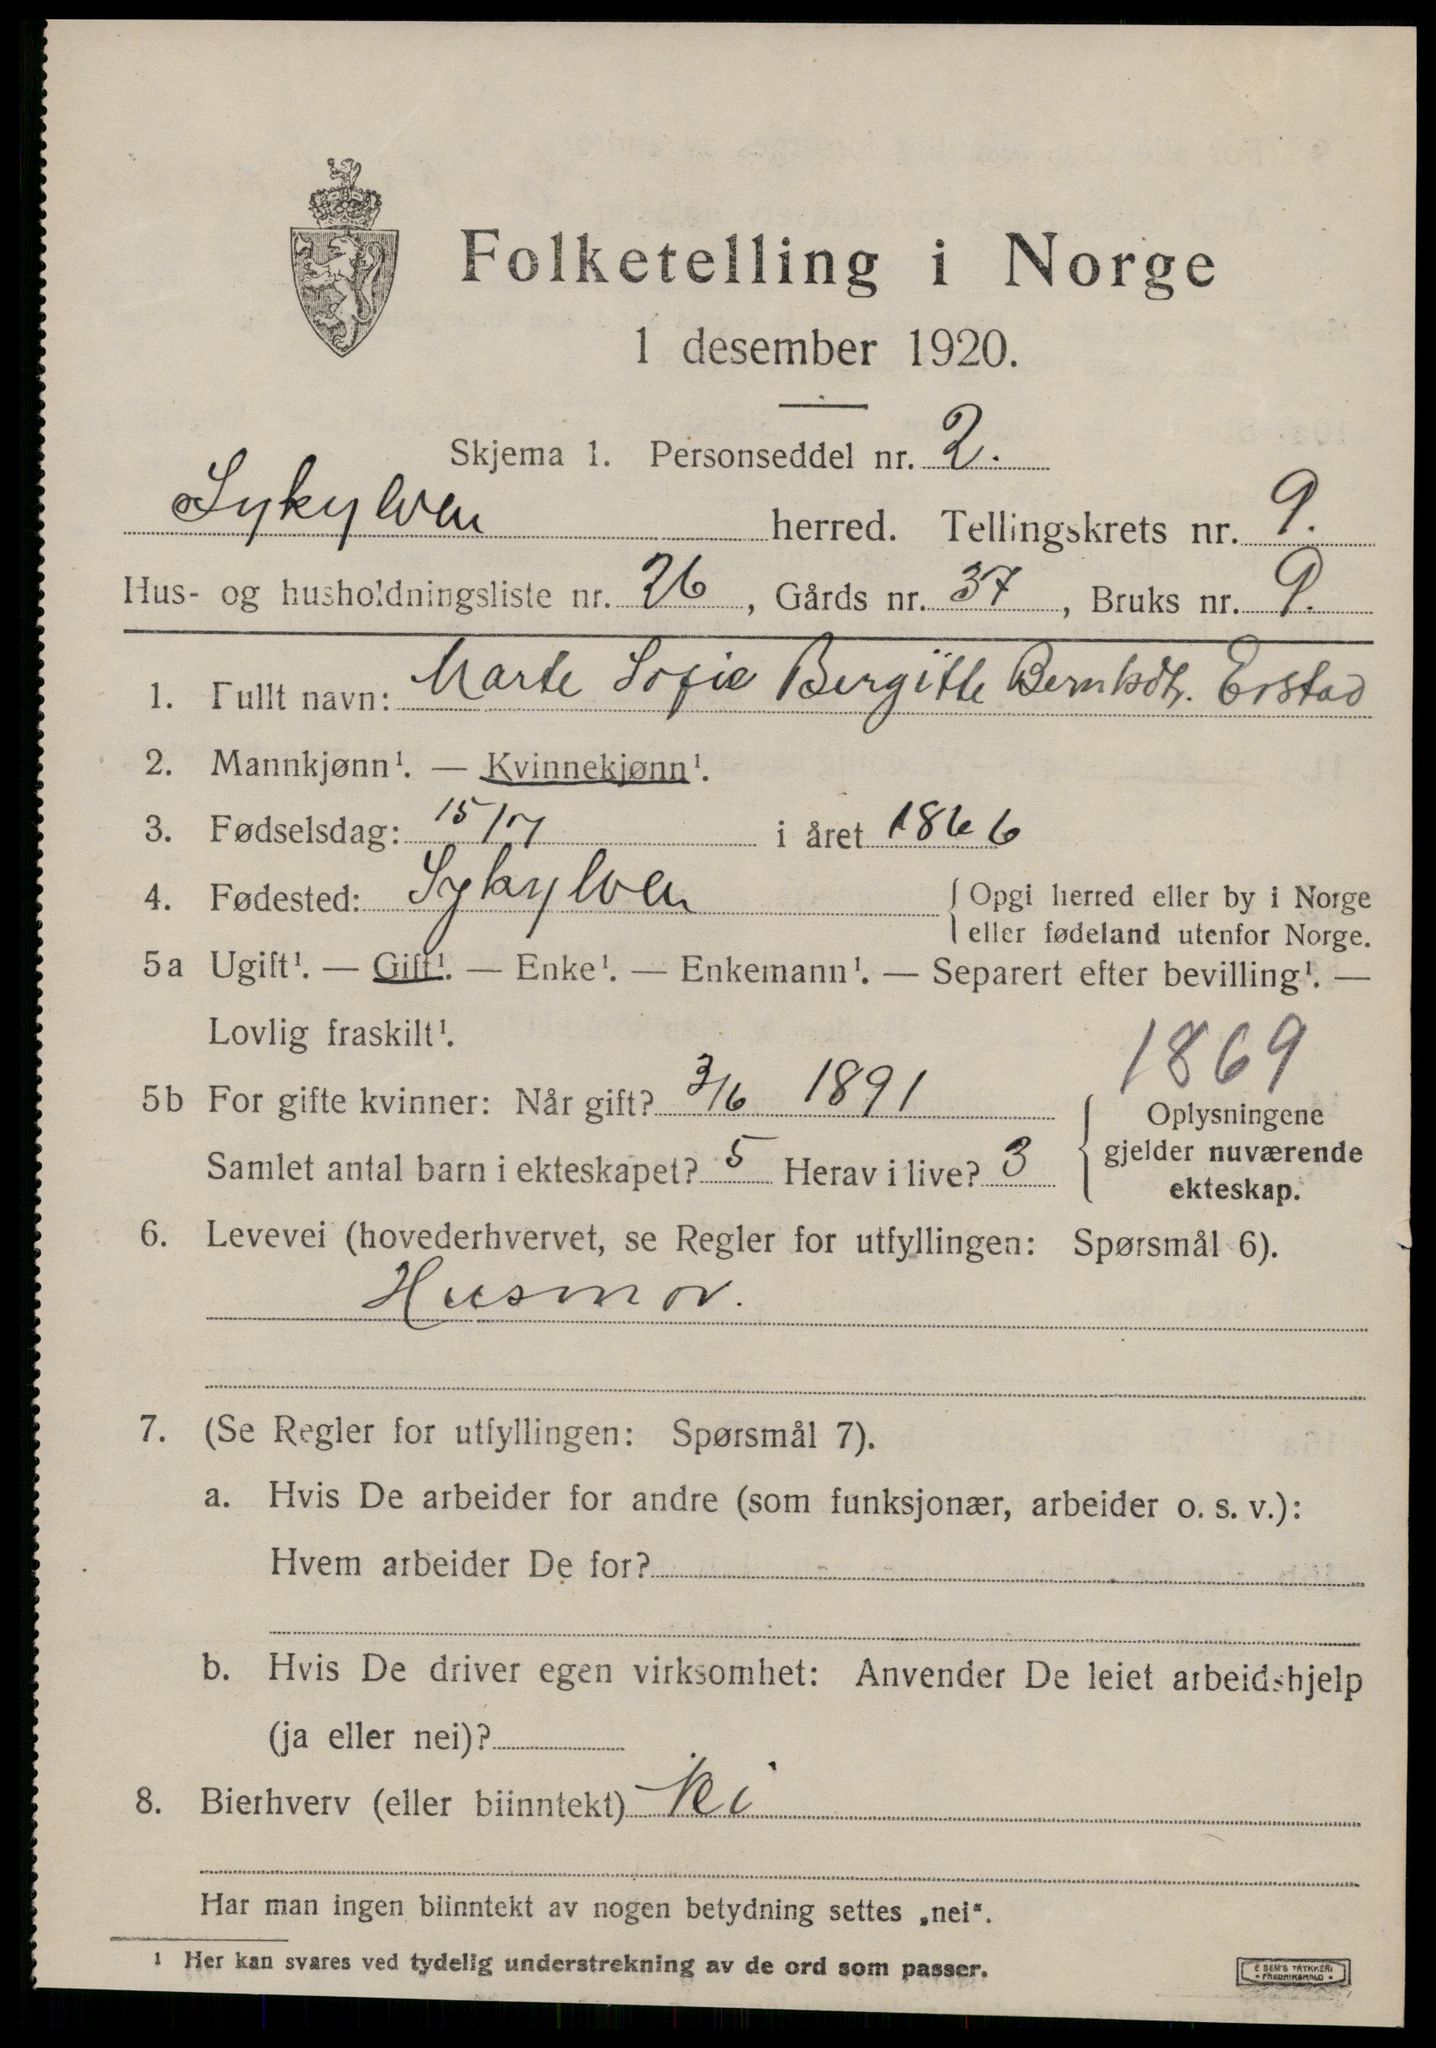 Folketelling i Norge
1 desember 1920.
Skjema 1. Personseddel nr. 2.
Sykylven herred. Tellingskrets nr. 9.
Hus- og husholdningsliste nr. 26, Gårds nr. 37, Bruks nr. 9.
1. Fullt navn: Marte Sofie Bergitte Bernhdtr. Erstad
2. Mannkjønn¹. — Kvinnekjønn¹.
3. Fødselsdag: 15/ i året 1866
4. Fødested: Sykylven { Opgi herred eller by i Norge
eller fødeland utenfor Norge.
5a Ugift¹. — Gift¹. — Enke¹. — Enkemann¹. — Separert efter bevilling¹. —
Lovlig fraskilt¹.
1869
5b For gifte kvinner: Når gift? 3/6 1891
Samlet antal barn i ekteskapet? 5 Herav i live? 3
{ Oplysningene
gjelder nuværende
ekteskap.
6. Levevei (hovederhvervet, se Regler for utfyllingen: Spørsmål 6).
Husmor.
7. (Se Regler for utfyllingen: Spørsmål 7).
a. Hvis De arbeider for andre (som funksjonær, arbeider o. s. v.):
Hvem arbeider De for?
b. Hvis De driver egen virksomhet: Anvender De leiet arbeidshjelp
(ja eller nei)?
8. Bierhverv (eller biinntekt) Nei
Har man ingen biinntekt av nogen betydning settes „nei".
¹ Her kan svares ved tydelig understrekning av de ord som passer.
E SEM'S TRYKKERI
FREDRIKSHALD